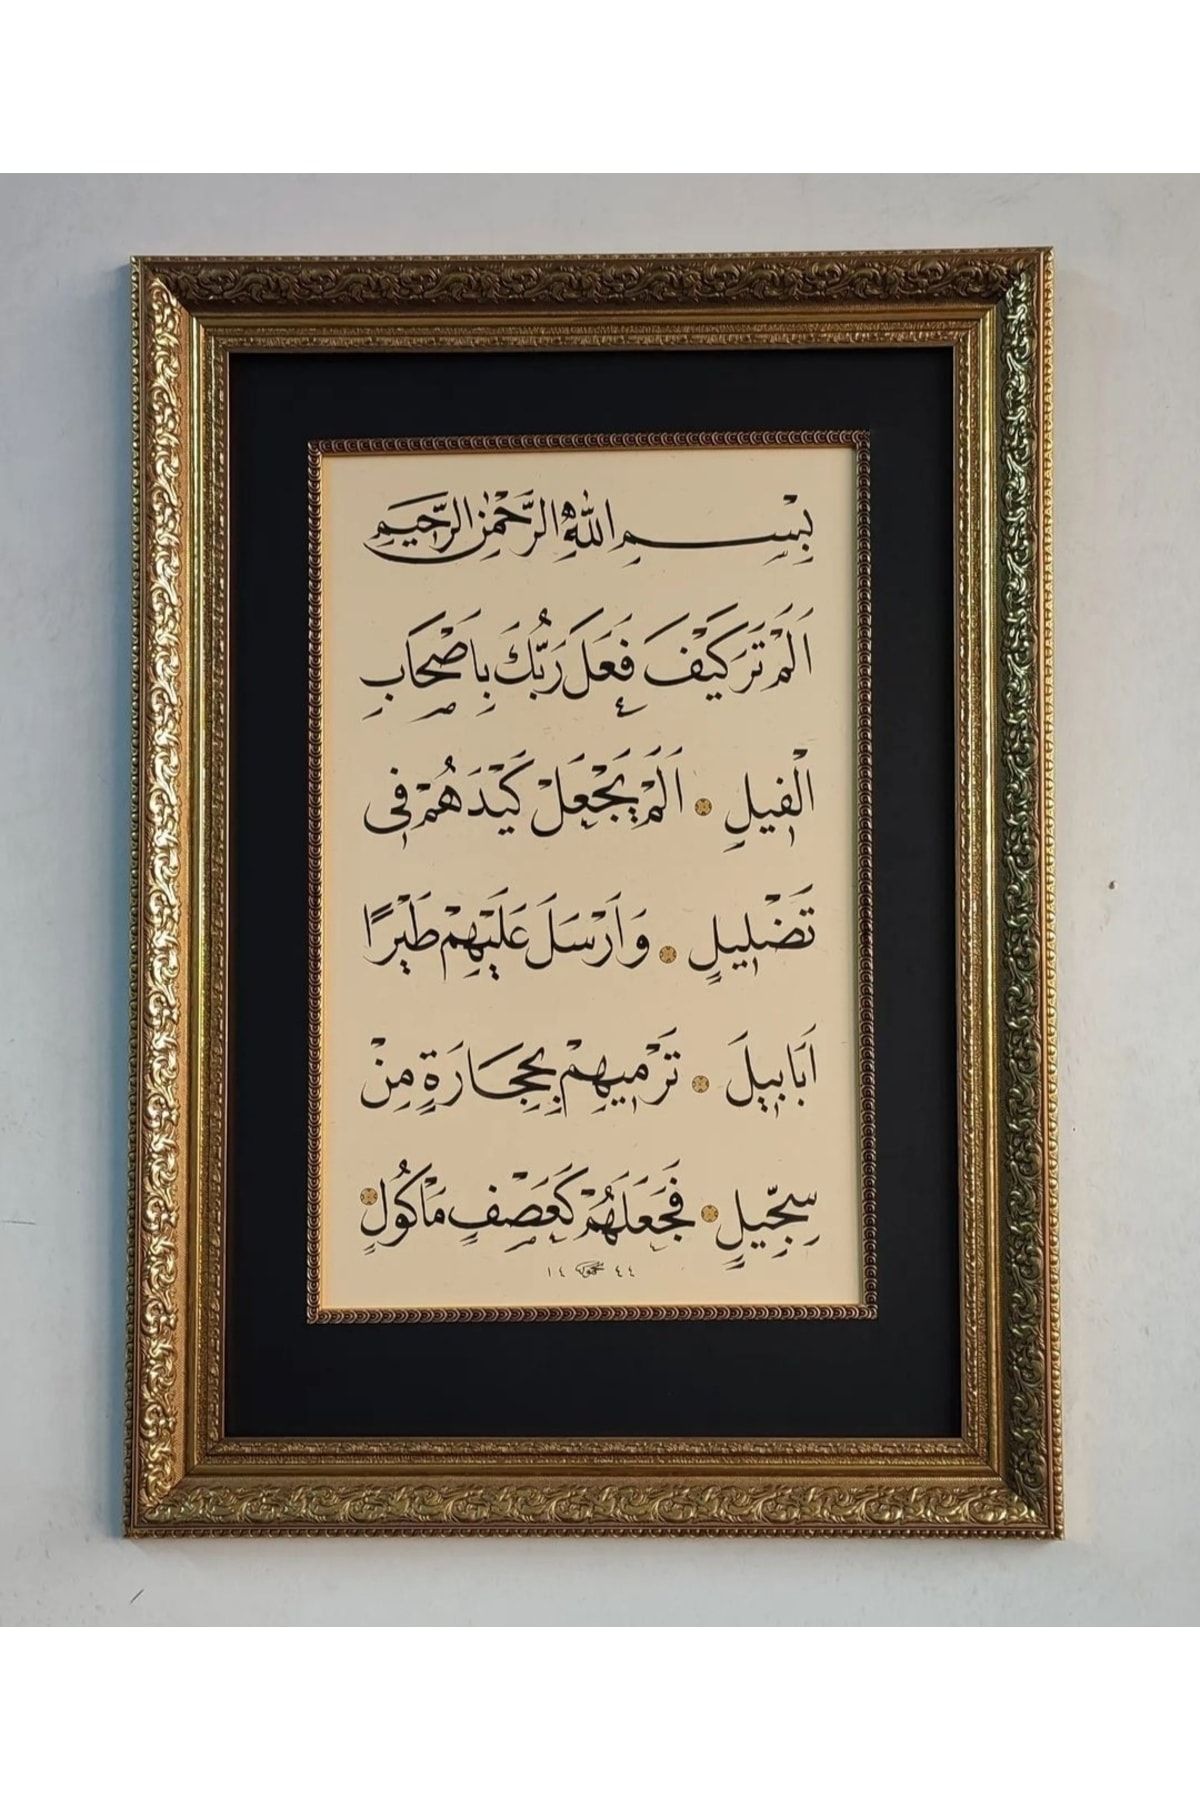 بِسْمِ اللهِ الرَّحْمٰنِ الرَّحِيمِ
اَلَمْ تَرَ كَيْفَ فَعَلَ رَبُّكَ بِاَصْحَابِ
الْفِيلِ اَلَمْ يَجْعَلْ كَيْدَهُمْ فِى
تَضْلِيلٍ وَاَرْسَلَ عَلَيْهِمْ طَيْرًا
اَبَابِيلَ تَرْمِيهِمْ بِحِجَارَةٍ مِنْ
سِجِّيلٍ فَجَعَلَهُمْ كَعَصْفٍ مَاْكُولٍ
١٤ ٤٤